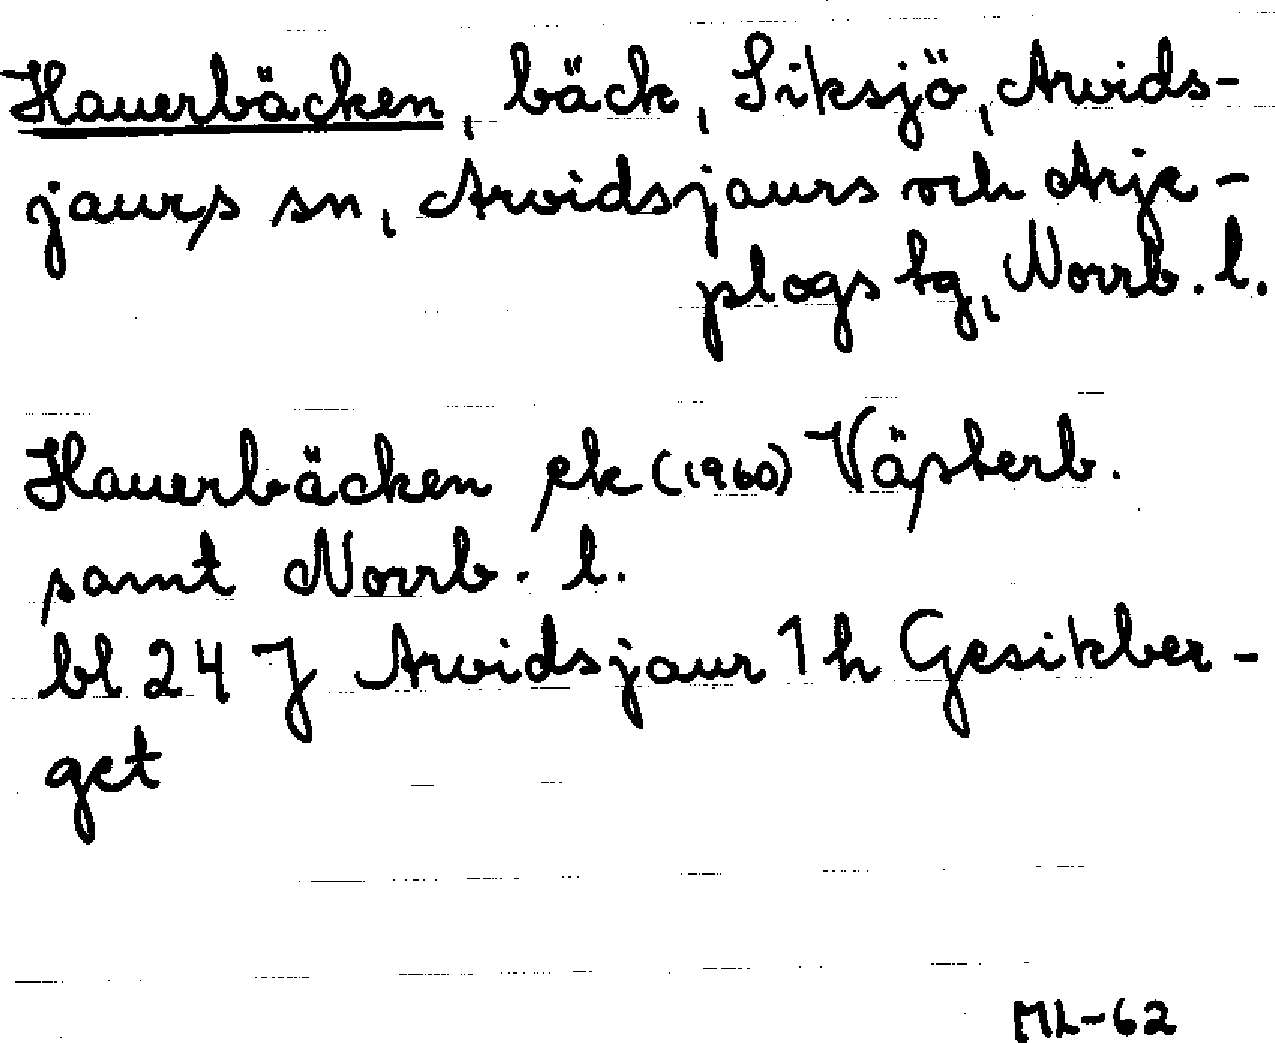 Hauerbäcken, bäck, Siksjö, Arvids-
jaurs sn, Arvidsjaurs och Arje-
plogs tg, Norrb. l.
Hauerbäcken ek (1960) Västerb.
samt Norrb. l.
bl 24 J Arvidsjaur 1 h Gesikber-
get
ML-62